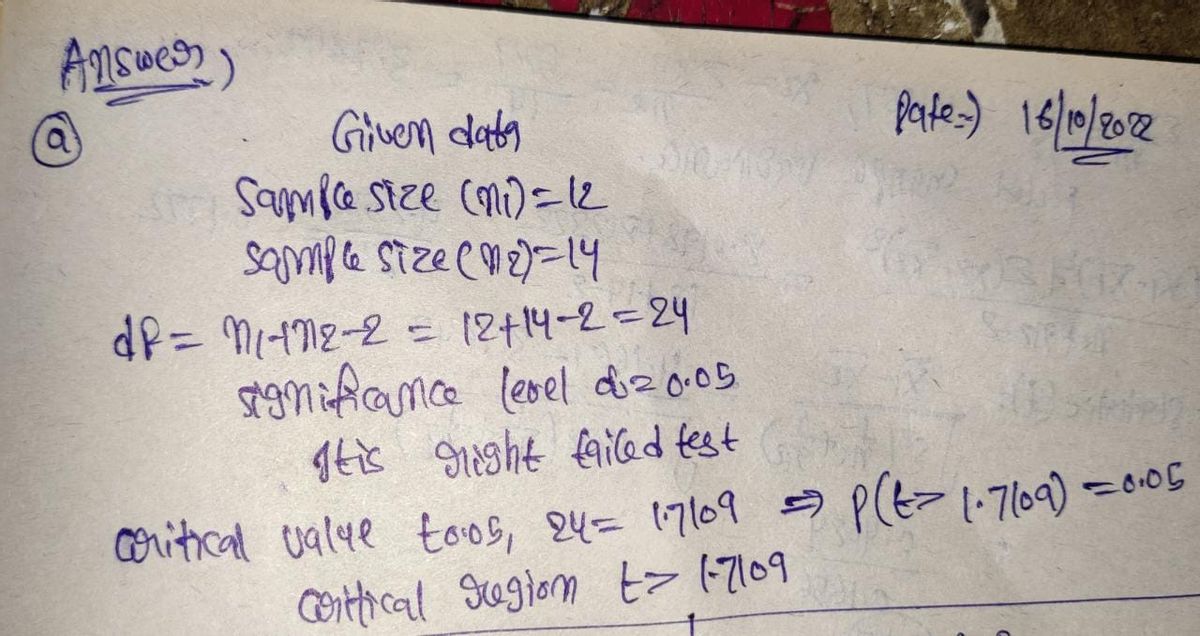 Answer,
Date:-) 16/10/2022
(a)
Given data
Sample size (n1) = 12
Sample size (n2) = 14
df = n1+n2-2 = 12+14-2 = 24
significance level α = 0.05
It is right tailed test
critical value t0.05, 24 = 1.7109 ⇒ P(t> 1.7109) = 0.05
critical region t> 1.7109